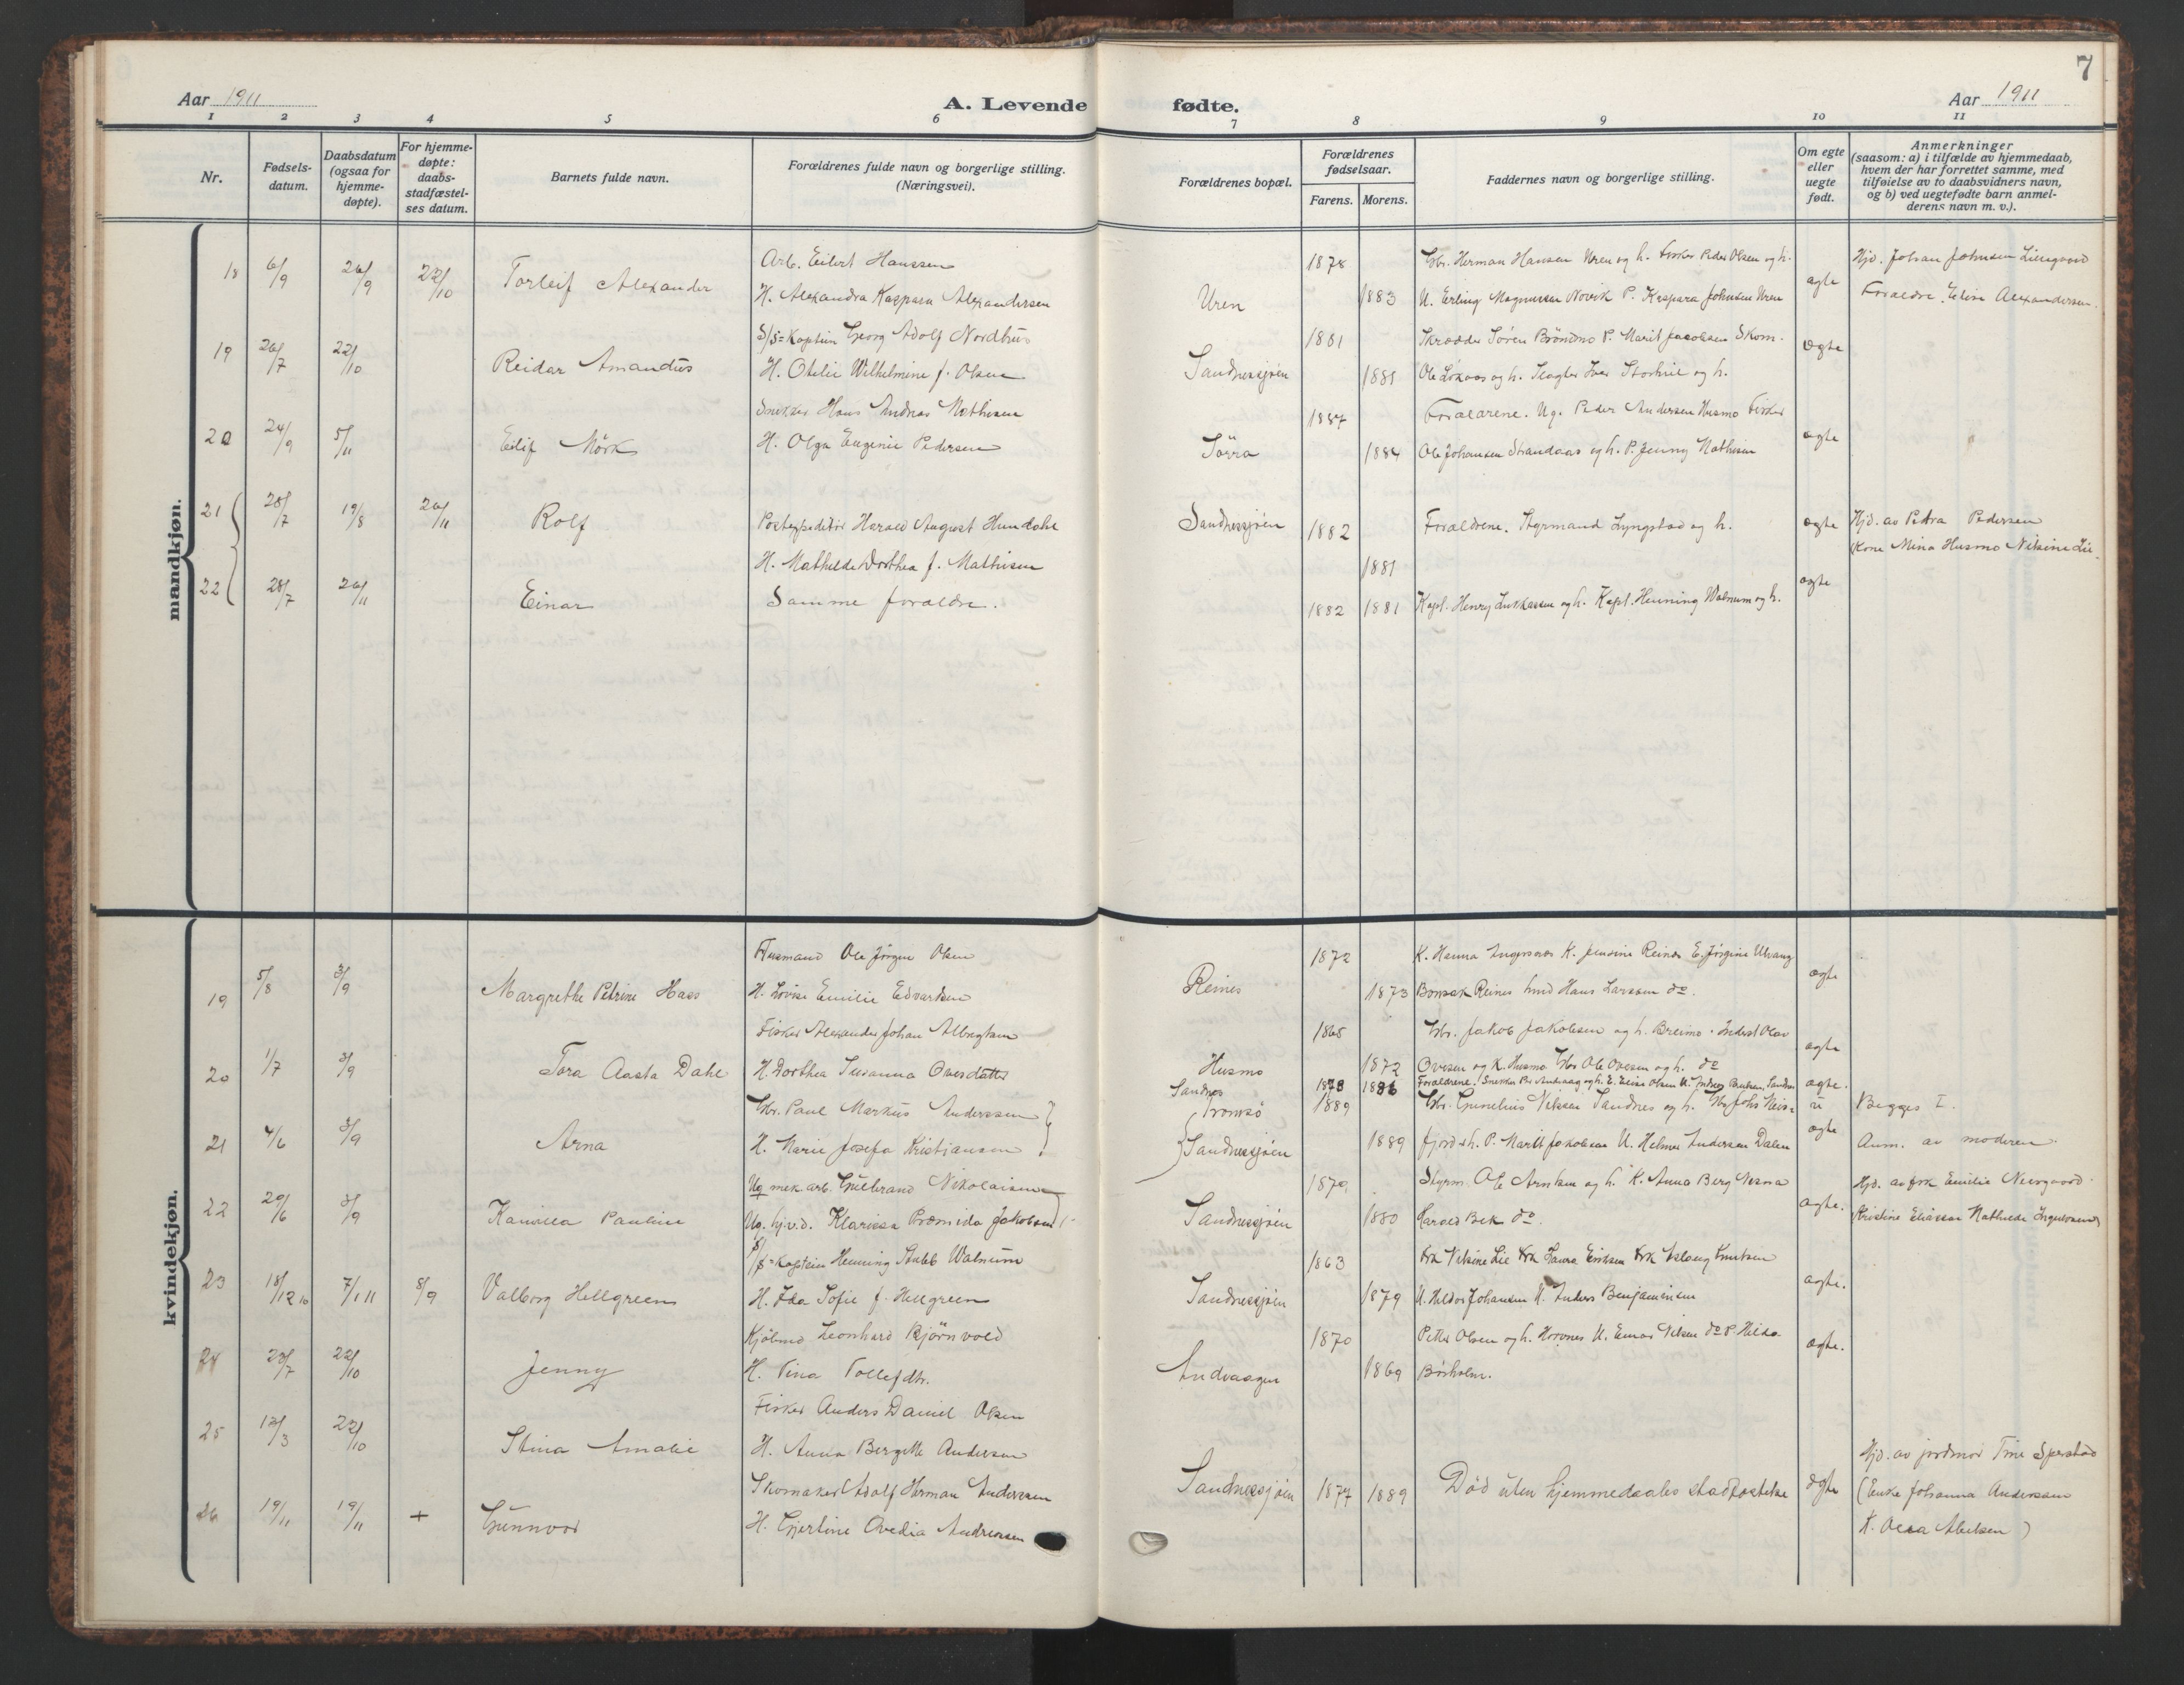 7
Aar 1911
A. Levende fødte.
Aar 1911
1 2 3 4 5 6 7 8 9 10 11
Nr.
Fødsels-
datum.
Daabsdatum
(ogsaa for
hjemme-
døpte).
For hjemme-
døpte:
daabs-
stadfæstel-
ses datum.
Barnets fulde navn.
Forældrenes fulde navn og borgerlige stilling.
(Næringsvei).
Forældrenes bopæl.
Forældrenes
fødselsaar.
Farens. Morens.
Faddernes navn og borgerlige stilling.
Om egte
eller
uegte
født.
Anmerkninger
(saasom: a) i tilfælde av hjemmedaab,
hvem der har forrettet samme, med
tilføielse av to daabsvidners navn,
og b) ved uegtefødte barn anmel-
derens navn m. v.).
mandkjøn.
18 6/9 26/9 22/10 Torleif Alexander
Arb. Eilert Hanssen
H. Alexandra Kaspara Alexandersen
Uren 1878 1883
Gbr. Herman Hansen Uren og h. Fisker Peder Olsen og h.
U. Erling Magnussen Novik P. Kaspara Johnsen Uren
ægte
Hjd. Johan Johnsen
Forældre. Elise Alexandersen.
19 26/7 22/10 Reidar Amandus
S/S=Kaptein Georg Adolf Nordhus
H. Otelie Wilhelmine f. Olsen
Sandnessjøen 1881 1881
Skrædder Søren Brøndmo P. Marit Jacobsen Skom.
Ole og h. Iver og h.
ægte
20 24/9 5/11 Eilif Mörk
Snekker Hans Andreas Mathisen
H. Olga Eugenie Pedersen
1887 1884
Forældrene. Ug. Peder Andersen Husmo Fisker
Ole Johansen Strandaas og h. P. Jenny Mathisen
ægte
21 28/7 19/8 26/11 Rolf
Postexpeditör Harald August Hundahl
H. Mathilde Dorthea f. Mathisen
Sandnessjøen 1882 1881
Forældrene. Styrmand Lyngstad og h.
ægte
Hjd. av Petra Pedersen
(Kone Mina Husmo Nilsine Lie.
22 28/7 26/11 Einar
Samme forældre.
1882 1881
Kapt. Henry Lukkassen og h. Kapt. Henning Walnum og h.
ægte
kvindekjøn.
19 5/8 3/9 Margrethe Petrine Hass
Husmand Ole Jörgen Olsen
H. Lovise Emilie Edvardsen
Reines 1872 1873
K. Hanna K. Jensine Reines E. Jörgine Ulvang
Reines Hans Larssen do.
ægte
20 1/7 3/9 Tora Aasta Dahl
Fisker Alexander Johan Albregtsen
H. Dorthea Susanna Ovesdatter
Husmo 1865 1872
Gbr. Jakob Jakobsen og h. Breimo. Inderst Olav
Ovesen og K. Husmo Gbr Ole Ovesen og h. do
ægte
21 4/6 3/9 Arna
Gbr. Paul Markus Anderssen
H. Marie Josefa Kristjansen
Sandnes 1878 1886
ægte.
22 20/6 3/9 Kamilla Pauline
Ug mek. arb. Gulbrand Nikolaisen
Ug. hj.v.d. Klarissa Jakobsen
Tromsø
Sandnessjøen 1889 1889
Gbr. Cornelius Nilssen Sandnes og h. Gbr Johs Reis=
fjord og h. P. Marit Jakobsen U. Helmer Andersen Dalen
u
ægte
Begges I.
Anm. av moderen
23 18/12 10 7/1 11 8/9 Valborg Hellgreen
S/S=Kaptein Henning Stabb Walnum
H. Ida Sofie f. Hellgreen
Sandnessjøen 1879 1880
Styrm. Ole Arntsen og h. K. Anna Berg Nesna
Harald Bek do.
ægte.
Hjd. av frk Emilie Neergaard
(Kristine Eliassen Mathilde Ingebrigtsen)
24 23/7 22/10 Jenny
Kjöbmd Leonhard Bjørnvold
H. Tina Tollefdtr.
Sandnessjøen 1863 1879
Frk Nilsine Lie Frk Laura Eriksen Frk Aslaug Knutsen
U. Hildor Johansen U. Anders Benjaminsen
ægte.
25 12/3 22/10 Stina Amalie
Fisker Anders Daniel Olsen
H. Anna Bergitte Andersen
Andvaagen 1870 1869
Petter Olsen og h. U. Einar Nilsen do P. Hilda
Börsholm.
ægte.
26 19/11 19/11 + Gunnvor
Skomaker Adolf Herman Anderssen
H. Gjertine Ovedia Andreassen
Sandnessjøen 1877 1889
Död uten hjemmedaabs stadfæstelse
ægte
Hjd. av jordmor Trine Sperstad
(Enke Johanna Anderssen
K. Olea Abelsen)